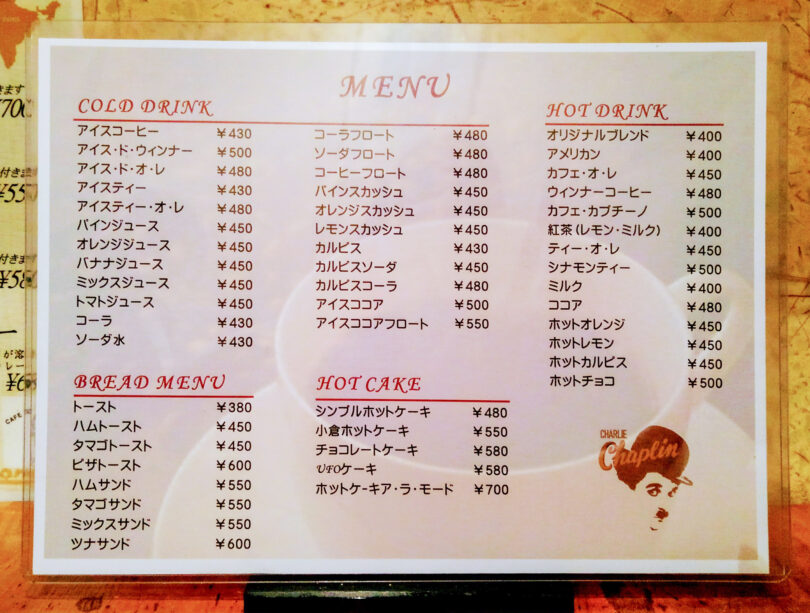 MENU
COLD DRINK
アイスコーヒー ￥430
アイス・ド・ウィンナー ￥500
アイス・ド・オ・レ ￥480
アイスティー ￥430
アイスティー・オ・レ ￥480
パインジュース ￥450
オレンジジュース ￥450
バナナジュース ￥450
ミックスジュース ￥450
トマトジュース ￥450
コーラ ￥430
ソーダ水 ￥430
コーラフロート ￥480
ソーダフロート ￥480
コーヒーフロート ￥480
パインスカッシュ ￥450
オレンジスカッシュ ￥450
レモンスカッシュ ￥450
カルピス ￥430
カルピスソーダ ￥450
カルピスコーラ ￥480
アイスココア ￥500
アイスココアフロート ￥550
HOT DRINK
オリジナルブレンド ￥400
アメリカン ￥400
カフェ・オ・レ ￥450
ウィンナーコーヒー ￥480
カフェ・カプチーノ ￥500
紅茶(レモン・ミルク) ￥400
ティー・オ・レ ￥450
シナモンティー ￥500
ミルク ￥400
ココア ￥480
ホットオレンジ ￥450
ホットレモン ￥450
ホットカルピス ￥450
ホットチョコ ￥500
BREAD MENU
トースト ￥380
ハムトースト ￥450
タマゴトースト ￥450
ピザトースト ￥600
ハムサンド ￥550
タマゴサンド ￥550
ミックスサンド ￥550
ツナサンド ￥600
HOT CAKE
シンプルホットケーキ ￥480
小倉ホットケーキ ￥550
チョコレートケーキ ￥580
UFOケーキ ￥580
ホットケーキア・ラ・モード ￥700
CHARLIE
Chaplin
きます
¥700
付きま
¥55
付きます
¥58
が溶
レー
¥6
CAFE